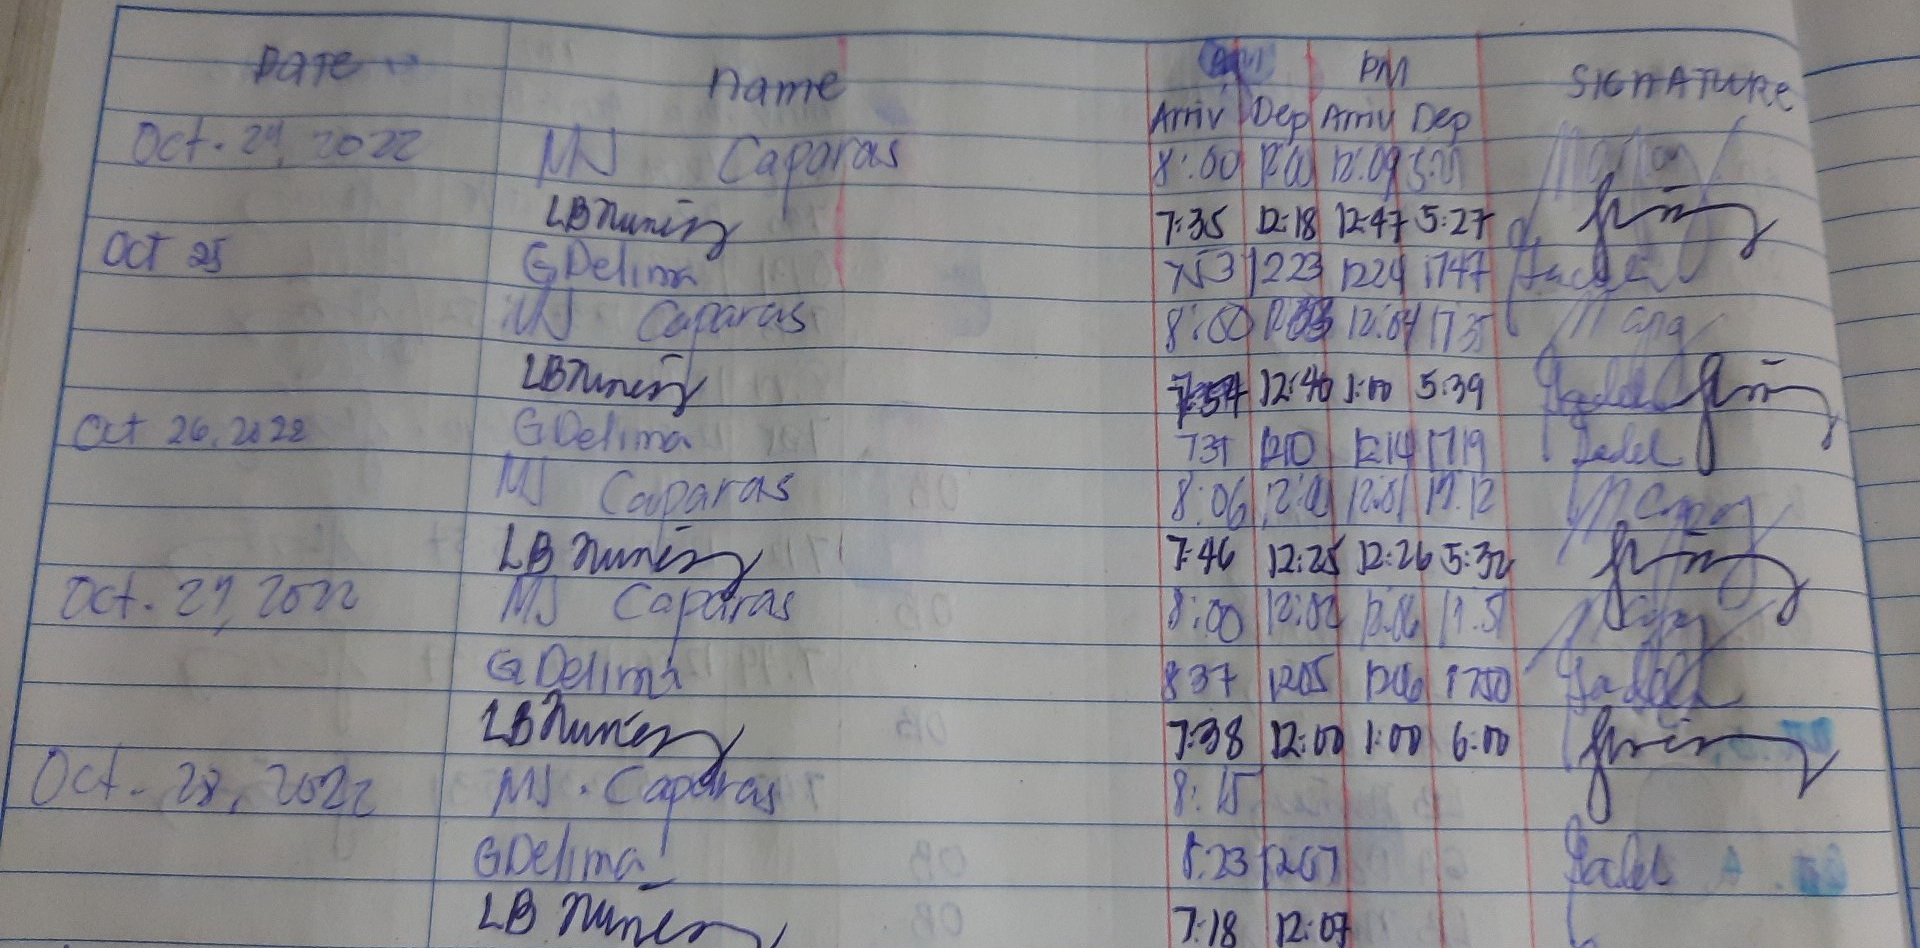 Date Name AM PM SIGNATURE
Arriv Dep Arriv Dep
Oct. 24, 2022 MJ Caparas 8:00 12:00 12:09 5:01
LB Nuñez 7:35 12:18 12:47 5:27
Oct 25 GDelima 753 1223 1224 1747
MJ Caparas 8:00 12:04 1735
LBNuñez 7:54 12:40 1:00 5:39
Oct 26, 2022 GDelima 737 1210 1214 1719
MJ Caparas 8:06 12:00 12:01 17:12
LB Nuñez 7:46 12:25 12:26 5:32
Oct. 27, 2022 MJ Caparas 8:00 12:02 12:06 17:51
GDelima 837 1205 1206 1750
LB Nuñez 7:38 12:00 1:00 6:00
Oct. 28, 2022 MJ. Caparas 8:15
GDelima 8:23 1207
LB Nuñez 7:18 12:07